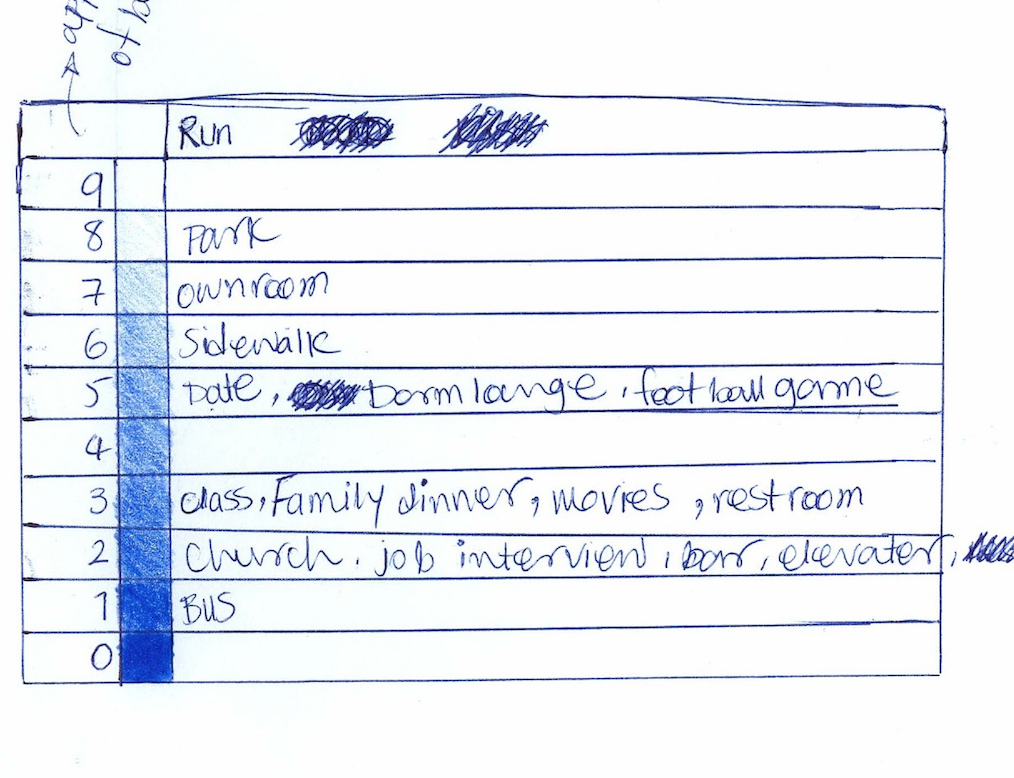 of
Run
9
8 Park
7 ownroom
6 Sidewalk
5 Date, Dormlounge, football game
4
3 class, Family dinner, movies, restroom
2 church, job interview, bar, elevater,
1 BUS
0